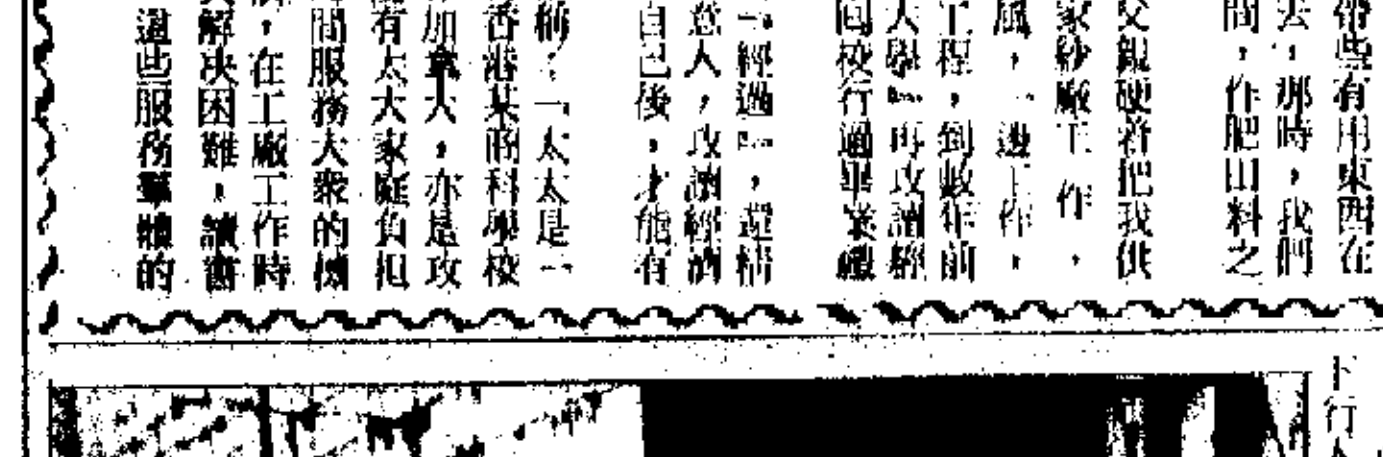 帶些有用東西在
去，那時，我們
間，作肥田料之
父親硬着把我供
家紗廠工作，
風，一邊工作，
工程，到數年前
大學，再攻讀經
同校行過畢業禮
「經過」，還精
意人，攻讀經濟
自己後，才能有
稱：「太太是一
香港某商科學校
加拿大，亦是攻
有太大家庭負担
間服務大衆的機
，在工廠工作時
解決困難，讀書
這些服務羣體的
下行人